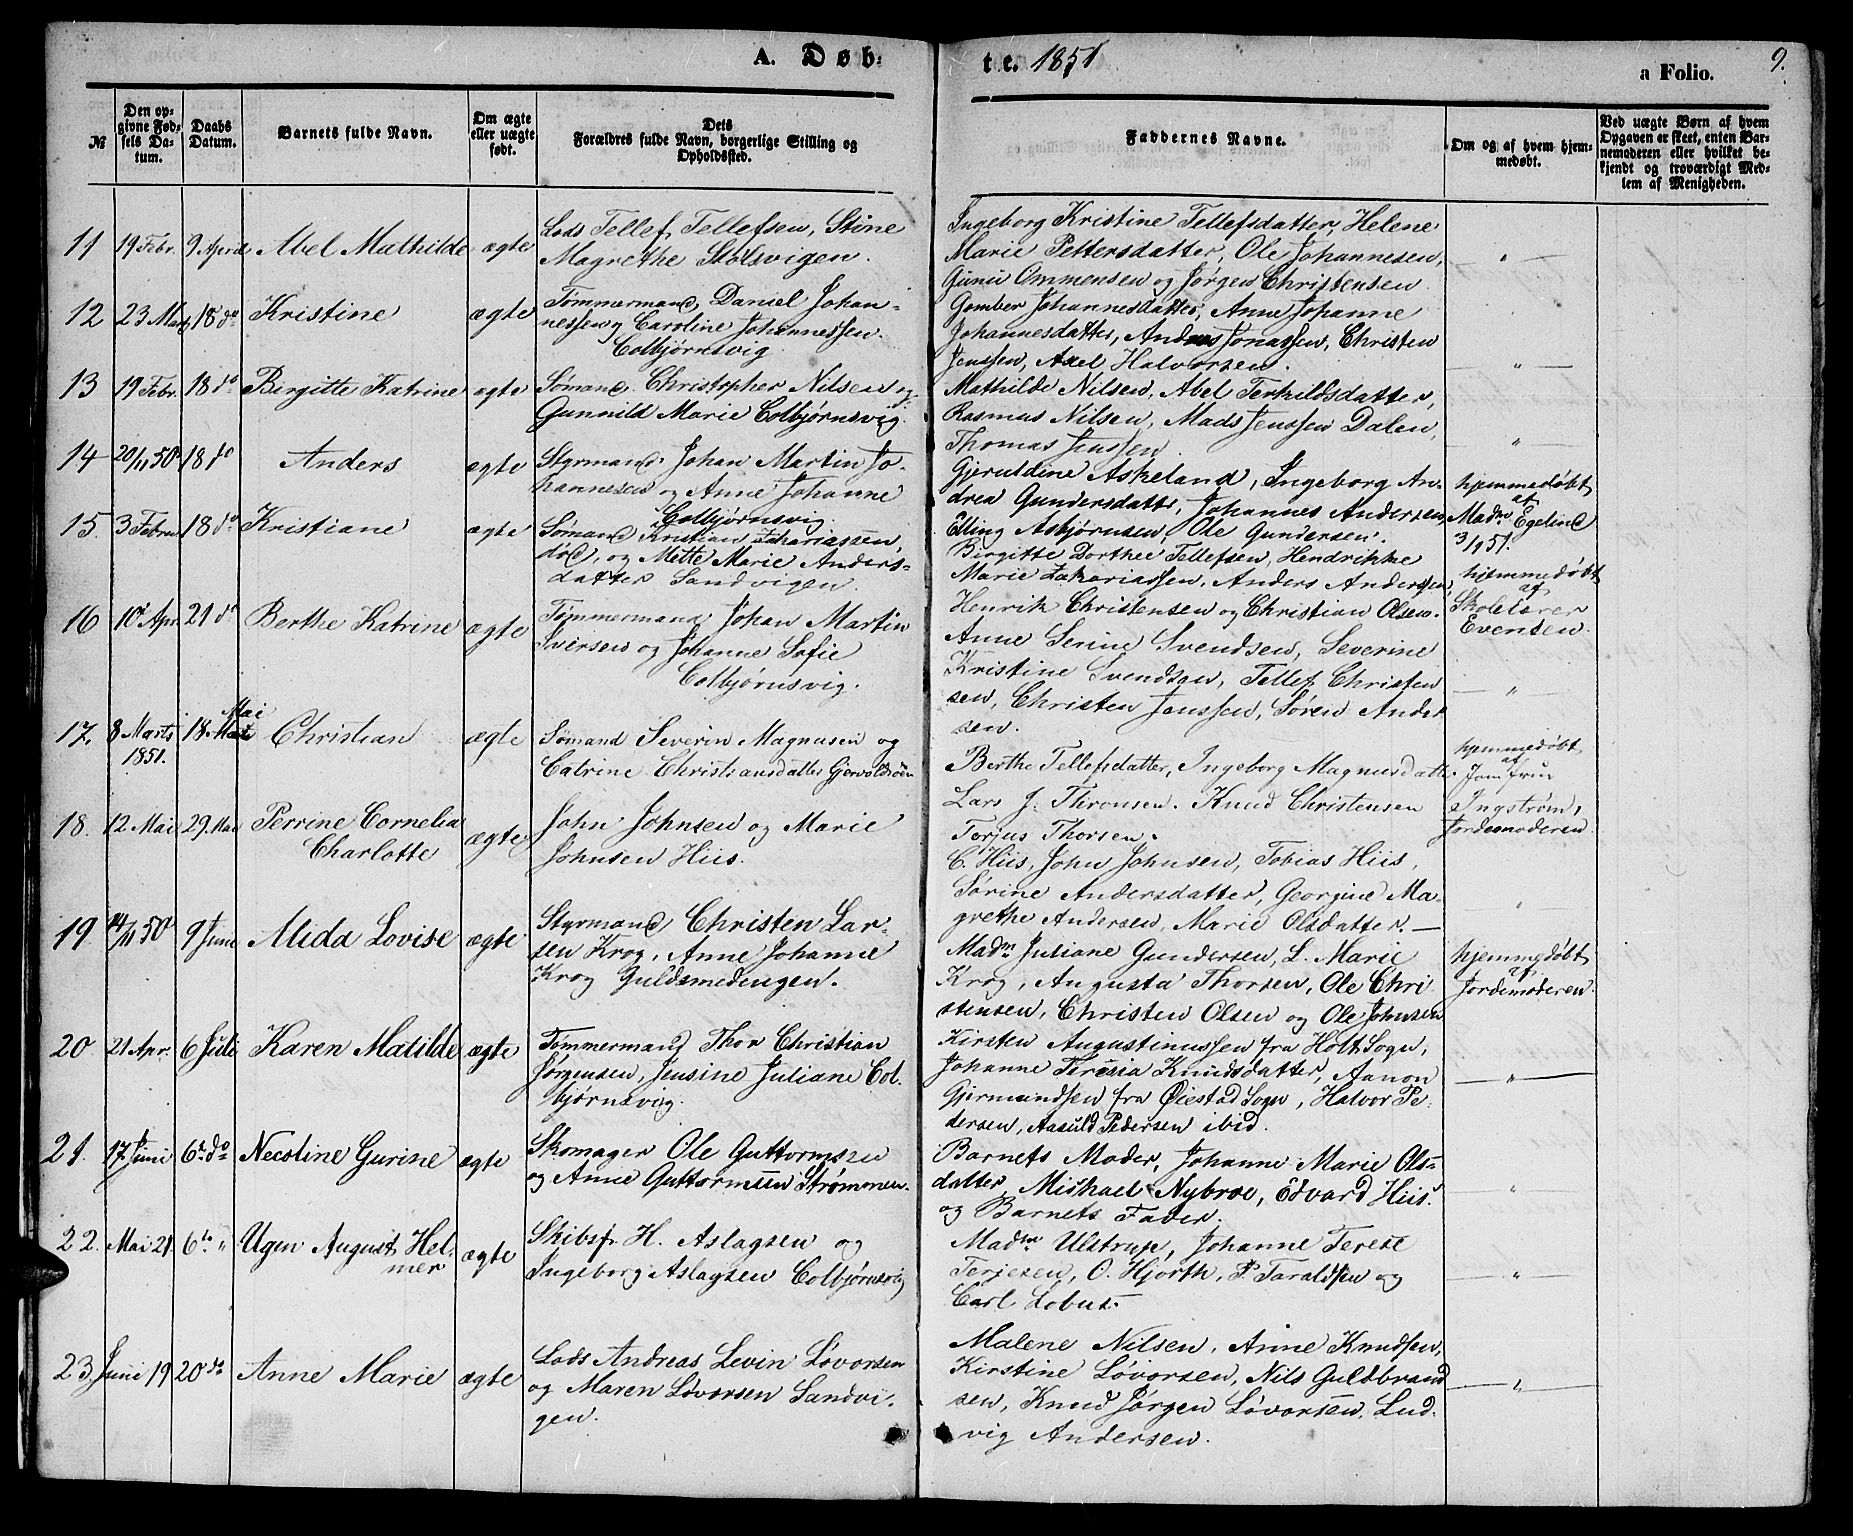 A. Døb-
te. 1851
a Folio. 9.
№
Den op-
givne Fød-
sels Da-
tum.
Daabs
Datum.
Barnets fulde Navn.
Om ægte
eller uægte
født.
Dets
Forældres fulde Navn, borgerlige Stilling og
Opholdssted.
Faddernes Navne.
Om og af hvem hjem-
medøbt.
Ved uægte Børn af hvem
Opgaven er skeet, enten Bar-
nemoderen eller hvilket be-
kjendt og troværdigt Med-
lem af Menigheden.
11 19 Febr. 9 April Abel Mathilde ægte
Lods Tellef Tellefsen, Stine
Magrethe Stølsvigen.
Ingeborg Kristine Tellefsdatter, Helene
Marie Pettersdatter, Ole Johannesen,
Gunu Ommensen og Jørgen Christensen
— " —
12 23 Marts 18 do Kristine ægte
Tømmermand, Daniel Johan-
nessen og Caroline Johannessen.
Colbjørnsvig
Gomber Johannesdatter, Anne Johanne
Johannesdatter, Anders Jonassen, Christen
Jenssen, Axel Halvorsen.
— " —
13 19 Febr. 18 do Birgitte Katrine ægte
Sømand. Christopher Nilsen og
Gunnild Marie Colbjørnsvig.
Mathilde Nilsen, Abel Terkildsdatter,
Rasmus Nilsen, Mads Jenssen Dalen,
Thomas Jenssen.
— " —
14 20/11 50 18 do Anders ægte
Styrmand. Johan Martin Jo-
hannesen og Anne Johanne
Colbjørnsvig.
Gjeruldine Askeland, Ingeborg An-
drea Gundersdatter, Johannes Andersen,
Elling Asbjørnsen, Ole Gundersen.
hjemmedøbt
af
Madm Egeline
3/1 51.
15. 3 Februar 18 do Kristiane ægte
Sømand Kristian Zakariassen,
død, og Mette Marie Anders-
datter Sandvigen.
Birgitte Dorthee Tellefsen, Hendrikke
Marie Zakariassen, Anders Andersen,
Henrik Christensen og Christian Olsen.
hjemmedøbt
af
Skolelærer
Evensen.
16 10 Apr. 21 do Berthe Katrine ægte
Tømmermand Johan Martin
Iversen og Johanne Sofie
Colbjørnsvig.
Anne Serine Svendsen, Severine
Kristine Svendsen, Tellef Christen
sen, Christen Jenssen, Søren Ander
sen.
— " —
17. 8 Marts
1851.
Mai
18 Christian ægte
Sømand Severin Magnusen og
Catrine Christiansdatter Gjervoldsøen
Berthe Tellefsdatter, Ingeborg Magnusdatte.
Lars J. Thronsen. Knud Christensen
Torjus Thorsen.
hjemmedøbt
af
Jomfrue
Ingstrøm,
Jordemoderen
18. 12 Mai 29. Mai Perrine Cornelia
Charlotte ægte
John Johnsen og Marie
Johnsen Hiis.
C. Hiis, John Johnsen, Tobias Hiis,
Sørine Andersdatter, Georgine Ma-
grethe Andersen, Marie Olsdatter. —
"
19 14/11 50 9 Juni Alida Lovise ægte
Styrmand Christen Lar-
sen Krog, Anne Johanne
Krog Guldsmedengen.
Madm Juliane Gundersen, L. Marie
Krog, Augusta Thorsen, Ole Chri
stensen, Christen Olsen og Ole Johnsen
hjemmedøbt
af
Jordemoderen.
20. 21 Apr. 6 Juli Karen Matilde ægte
Tømmermand Thor Christian
Jørgensen, Jensine Juliane Col-
bjørnsvig.
Kirsten Augustinussen fra Holt Sogn,
Johanne Teresia Knudsdatter, Aanon
Gjermundsen fra Øiestad Sogn, Halvor Pe-
dersen, Aasuld Pedersen ibid.
— " —
21. 17 Juni 6te do Necoline Gurine ægte
Skomager Ole Guttormsen
og Anne Guttormsen Strømmen.
Barnets Moder, Johanne Marie Ols-
datter, Mickael Nybroe, Edvard Hiis.
og Barnets Fader.
— " —
22. Mai 21. 6te " Ugen August Hel-
mer ægte
Skibsf. H. Aslagsen og
Ingeborg Aslagsen Colbjørnsvig
Madm Ulstrup, Johanne Terese
Terjesen, O. Hjorth, P. Taraldsen og
Carl Lobus.
— " —
23 Juni 19 20 do Anne Marie ægte
Lods Andreas Levin Løvorsen
og Maren Løvorsen Sandvi-
gen.
Malene Nilsen, Anne Knudsen,
Kirstine Løvorsen, Nils Guldbrand
sen, Knud Jørgen Løvorsen, Lud-
vig Andersen.
— " —